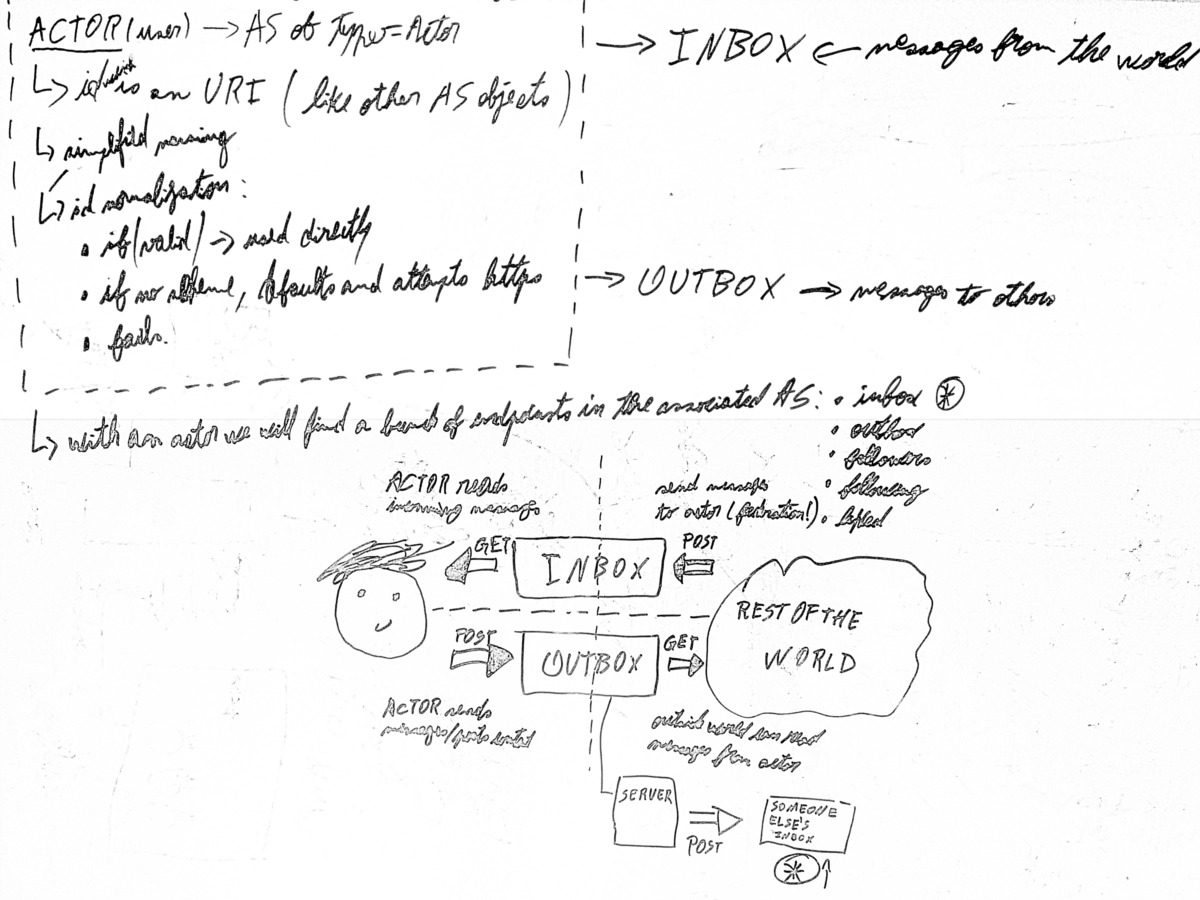 ACTOR (user) → AS of Type=Actor
↳ id is an URI (like other AS objects)
↳ simplifild
↳ id normalization:
• if (valid) → used directly
• if no scheme, defaults and attempts https
• fails.
→ INBOX ← messages from the world
→ OUTBOX → messages to others
↳ with an actor we will find a bunch of endpoints in the associated AS: • inbox *
• outbox
• followers
• following
• liked
ACTOR reads
incoming messages
send messages
to actor (federation!)
GET
INBOX
POST
REST OF THE
WORLD
POST
OUTBOX
GET
ACTOR sends
messages/posts content
outside world can read
messages from actor
SERVER
POST
SOMEONE
ELSE'S
INBOX
* ↑